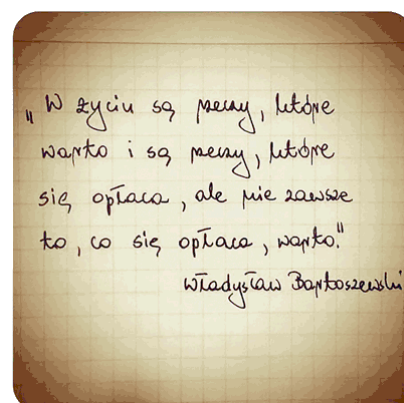 „W życiu są rzeczy, które
warto i są rzeczy, które
się opłaca, ale nie zawsze
to, co się opłaca, warto."
Władysław Bartoszewski